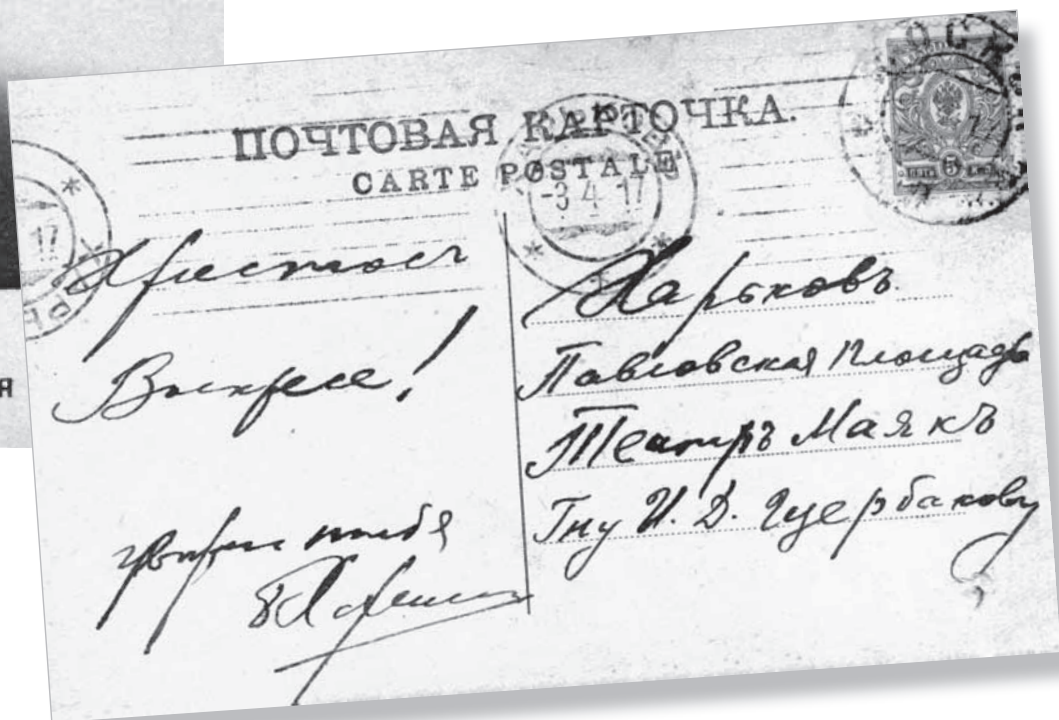 ПОЧТОВАЯ КАРТОЧКА.
CARTE POSTALE
-3 4 17
17
Я
Христосъ
Воскресе!
тебя
Харьковъ.
Павловская Площадь
Театръ Маякъ
Гну И. Д. Щербакову